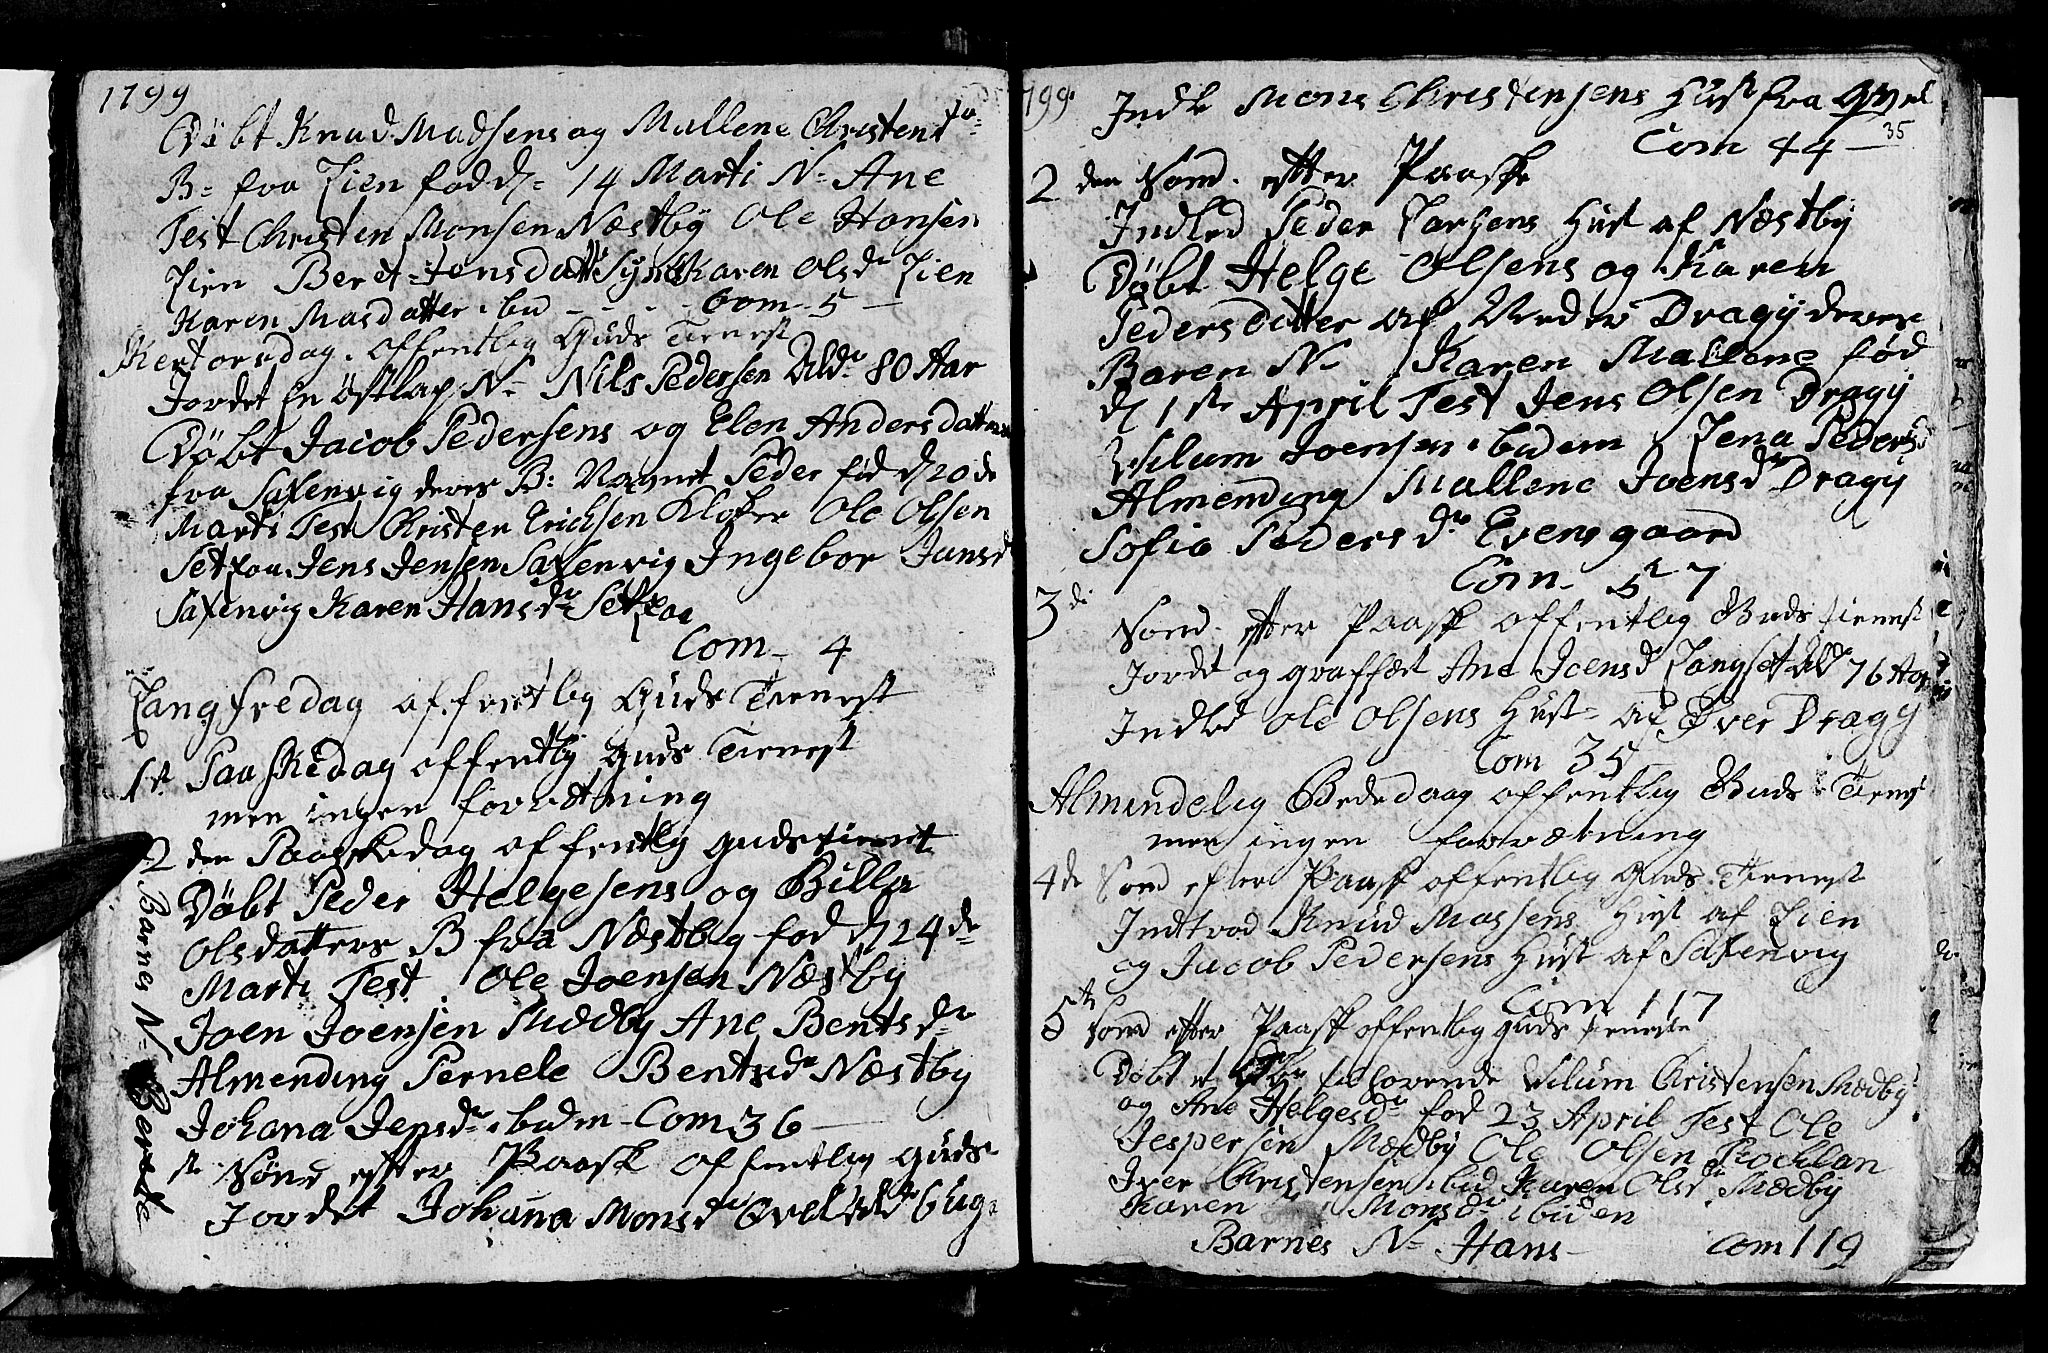 1799
Døbt Knud Madsens og Mallene Christensda-
B= fra Lien fød d= 14 Marti N= Ane
Test Christen Monsen Næstby Ole Hansen
Lien Beret Jensdatter Karen Olsd= Lien
Karen Masdatter ibid - - - Com - 5 -
Skertorsdag offentlig Guds Tienest
Jordet En Østlap N= Nils Pedersen Ald= 80 Aar
Døbt Jacob Pedersens og Elen Andersdatters
fra Saxenvig deres B: Navnet Peder fød d 20de
Marti Test Christen Erichsen Kloker Ole Olsen
Setraa Jens Jensen Saxenvig Ingebor Jansd
Saxenvig Karen Hansd= Setraa
Com - 4
Langfredag offentlig Guds Tienest
1st Paaskedag offentlig Guds Tienest
men ingen forrætning
2 den Paaskedag offentlig gudstienst
Døbt Peder Helgesens og Billa
Olsdatters B fra Næstby fød d 24de
Marti Test Ole Joensen Næstby
Joen Joensen Mædby Ane Bentsd=
Almending Pernele Bentsd= Næstby
Johana Jensd= ibidem - Com 36 -
Barnes N= Berete
1ste Sønd efter Paask offentlig guds
Jordet Johana Monsd= Qvel Ald= 6 Uge
1799. Indle Mons Christensens Hust fra Qvel
35
Com 44 -
2 den Sønd. efter Paaske
Indled Peder Larsens Hust af Næstby
Døbt Helge Olsens og Karen
Pedersdatter af Neder Dragy deres
Baren N= Karen Mallene fød
d 1ste April Test Jens Olsen Dragy
Vilum Joensen ibidem Lena Pedersd
Almending Mallene Joensd= Dragy
Sofia Pedersd= Evensgaard
Com - 57
3de Sønd. efter Paask offentlig Guds tienest
Jordet og graffæet Ane Joensd Langset Ald 76 Aar
Indled Ole Olsens Hust= af Øver Dragy
Com 35
Almindelig Bededaag offentlig Guds Tienest
men ingen forrætning
4de Sønd efter Paask offentlig Guds Tienest
Indtrod Knud Massens Hust af Lien
og Jacob Pedersens Hust af Saxenvig
Com 117
5te Sønd efter Paask offentlig guds tieneste
Døbt et forlovende Vilum Christensen Mædby
og Ane Helgesd= fød 23 April Test Ole
Jespersen Mædby Ole Olsen
Iver Christensen ibid Karen Olsd= Mædby
Karen Monsd= ibiden
Barnes N= Hans - Com 119